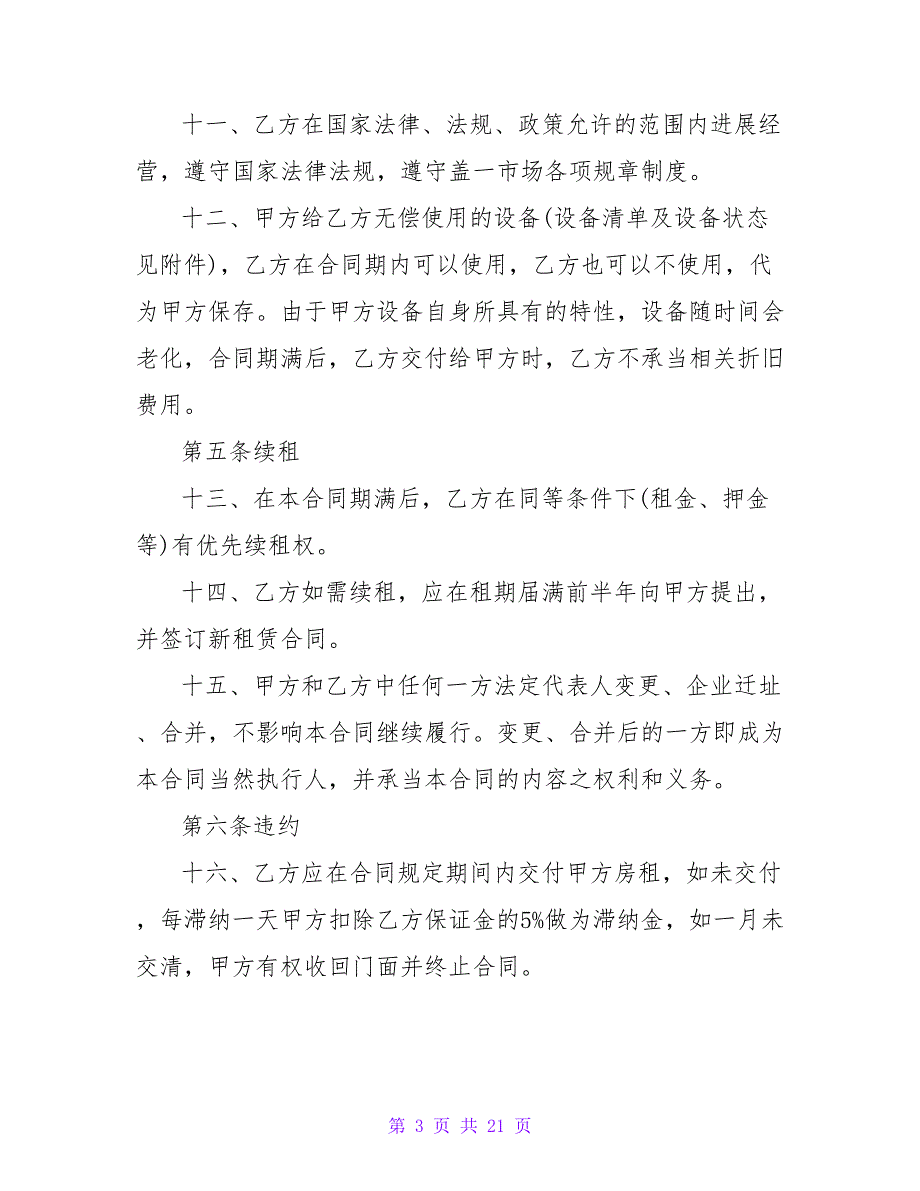 十一、乙方在国家法律、法规、政策允许的范围内进展经
营，遵守国家法律法规，遵守盖一市场各项规章制度。
十二、甲方给乙方无偿使用的设备(设备清单及设备状态
见附件)，乙方在合同期内可以使用，乙方也可以不使用，代
为甲方保存。由于甲方设备自身所具有的特性，设备随时间会
老化，合同期满后，乙方交付给甲方时，乙方不承当相关折旧
费用。
第五条续租
十三、在本合同期满后，乙方在同等条件下(租金、押金
等)有优先续租权。
十四、乙方如需续租，应在租期届满前半年向甲方提出，
并签订新租赁合同。
十五、甲方和乙方中任何一方法定代表人变更、企业迁址
、合并，不影响本合同继续履行。变更、合并后的一方即成为
本合同当然执行人，并承当本合同的内容之权利和义务。
第六条违约
十六、乙方应在合同规定期间内交付甲方房租，如未交付
，每滞纳一天甲方扣除乙方保证金的5%做为滞纳金，如一月未
交清，甲方有权收回门面并终止合同。
第 3 页 共 21 页